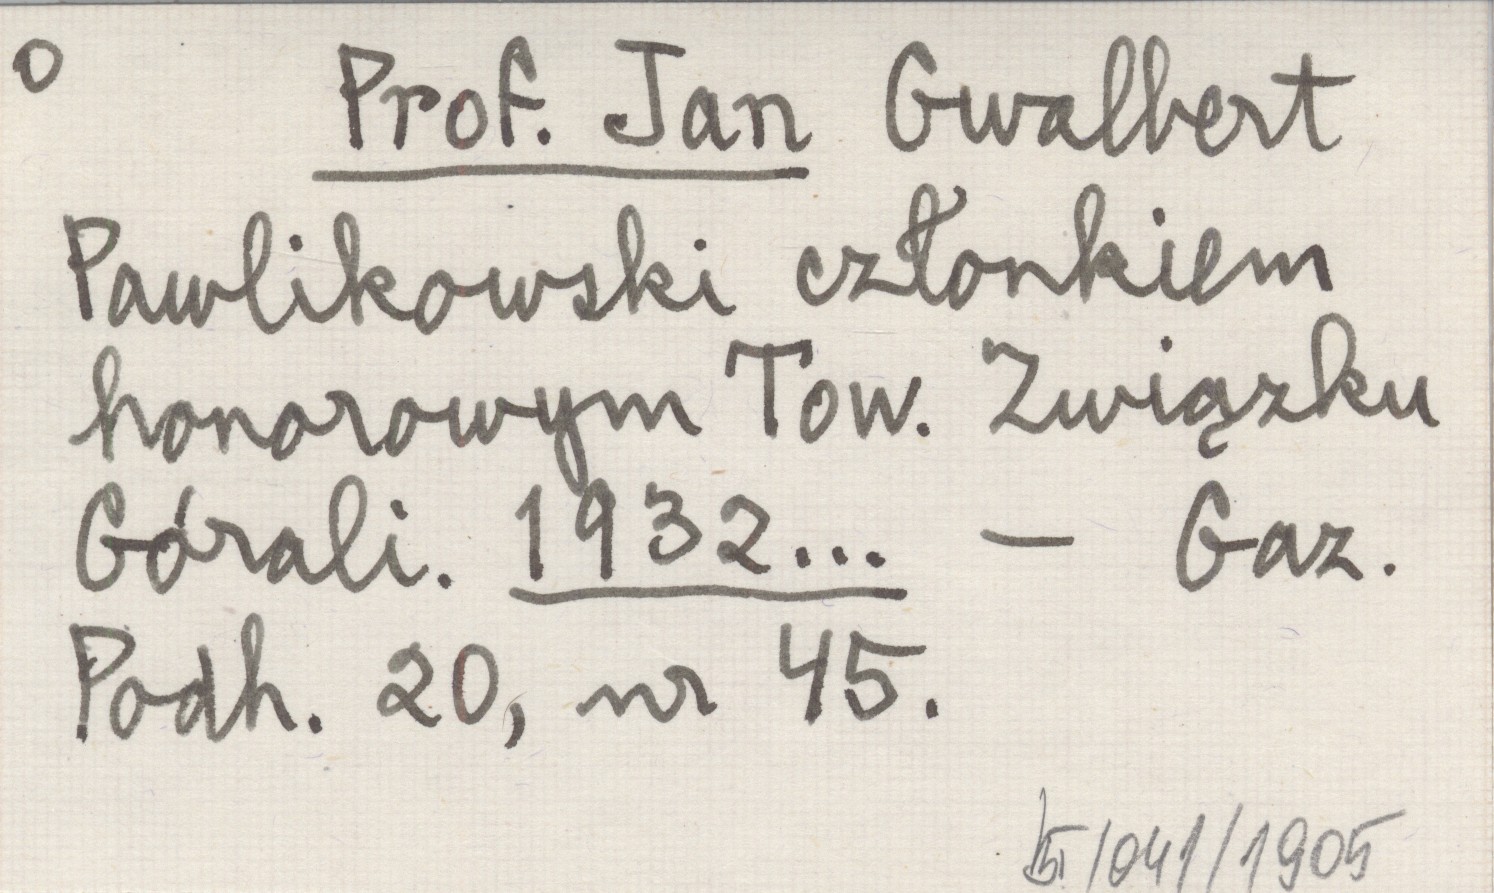 o Prof. Jan Gwalbert
Pawlikowski członkiem
honorowym Tow. Związku
Górali. 1932... — Gaz.
Podh. 20, nr 45.
/041/1905